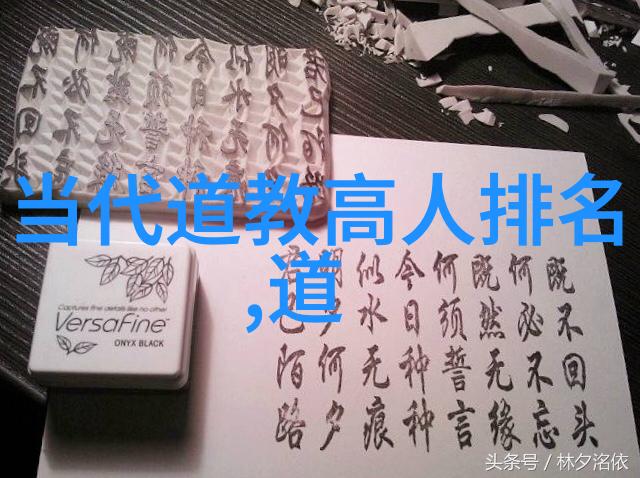 当代道教高人排名
,道
Captures fine details like no other
VersaFine
ONYX BLACK
既不回头
何必不忘
既然无缘
何须誓言
今日种种
似水无痕
明夕何夕
君已陌路
头条号 / 林夕洺依